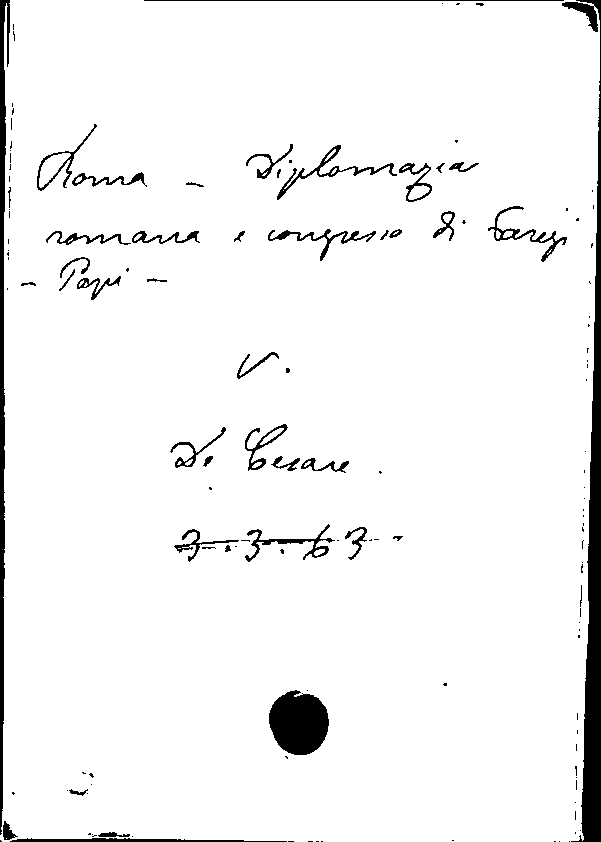 Roma - Diplomazia
romana e congresso di Parigi
- Papi -
V.
De Cesare.
3.3.63-